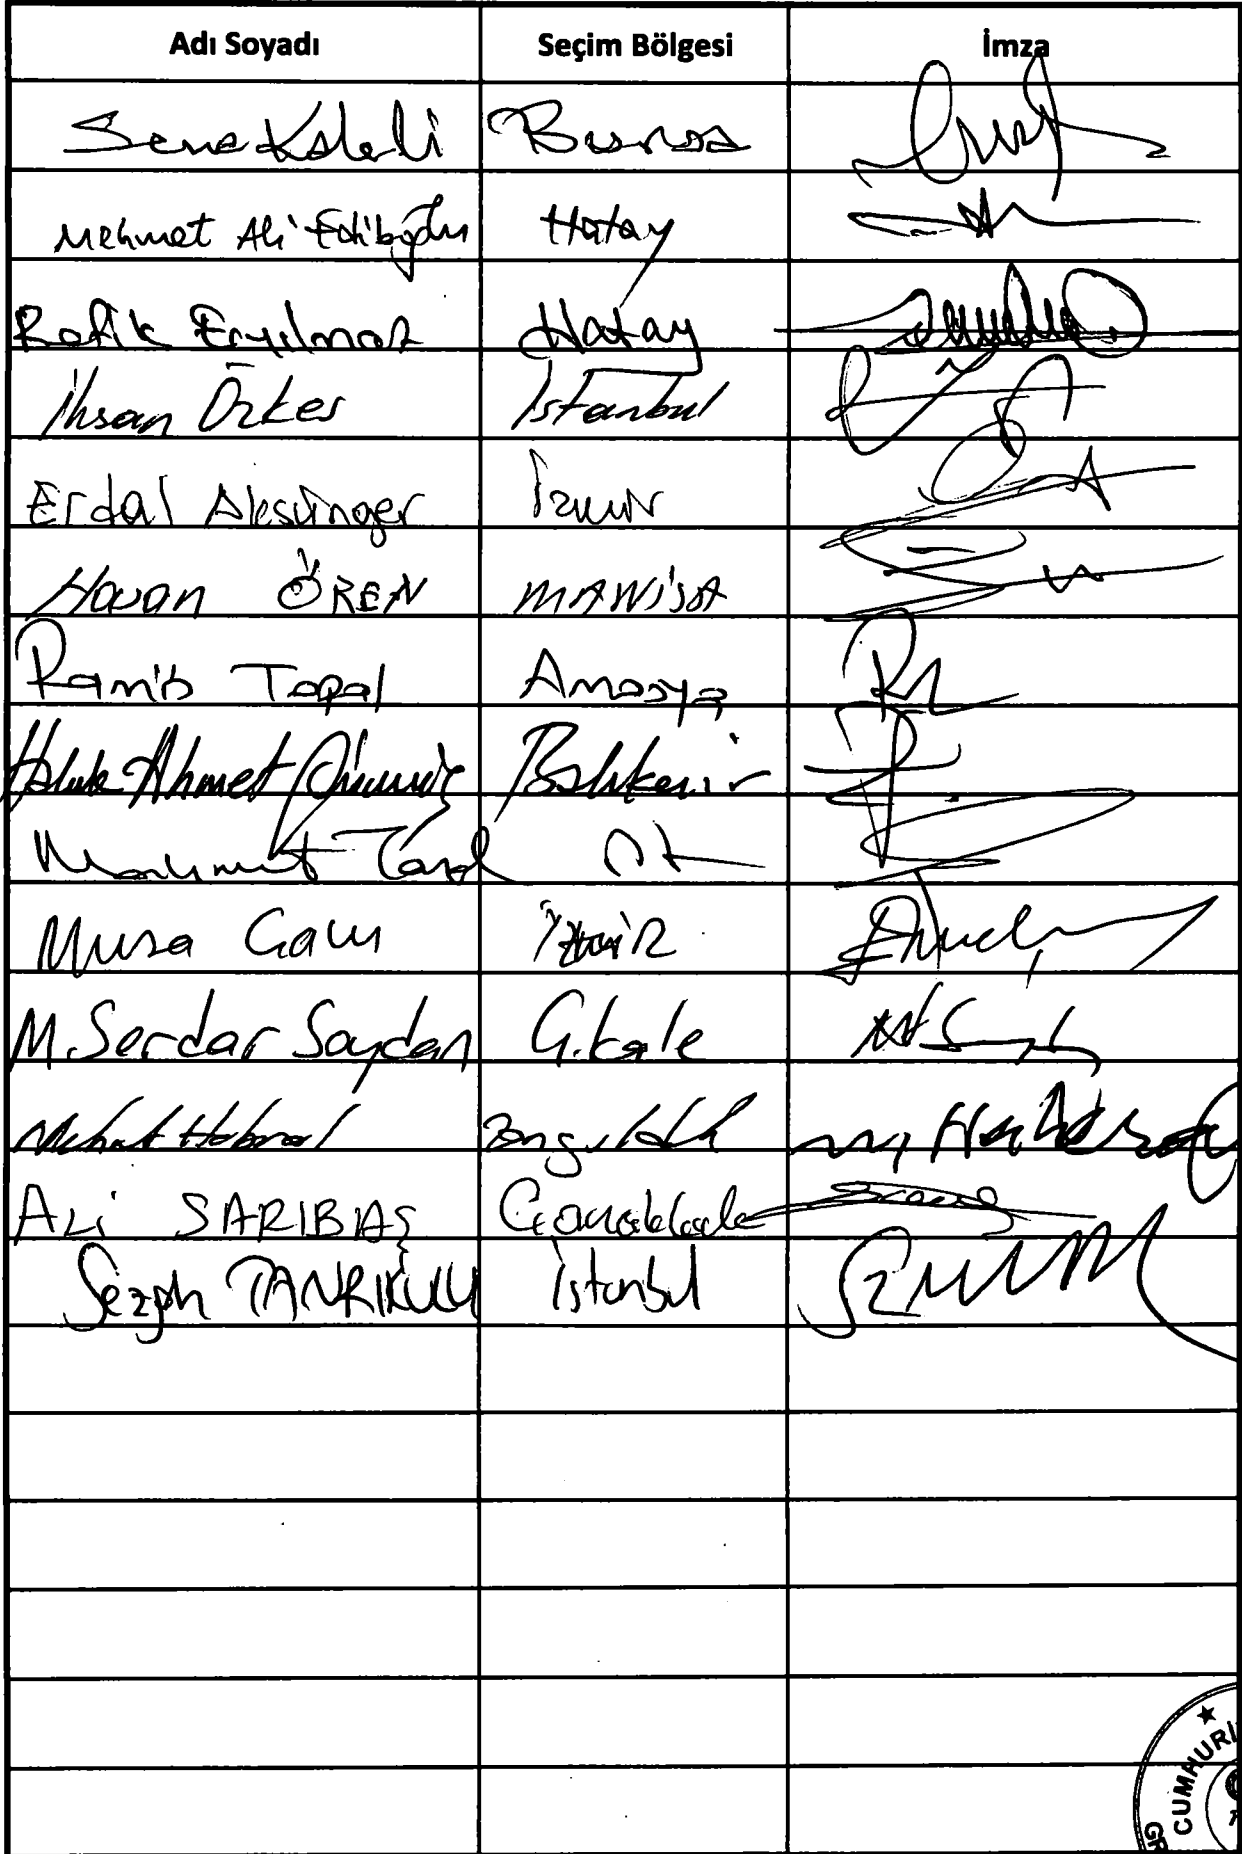 Adı Soyadı Seçim Bölgesi İmza
Sena Kaleli Bursa
Mehmet Ali Ediboğlu Hatay
Refik Eryılmaz Hatay
İhsan Özkes İstanbul
Erdal Aksünger İzmir
Hasan ÖREN MANİSA
Ramis Topal Amasya
Haluk Ahmet Gümüş Balıkesir
Mahmut Tanal İst
Musa Çam İZMİR
M. Serdar Soydan Ç.kale
Mehmet Haberal Zonguldak
ALi SARIBAŞ Çanakkale
Sezgin TANRIKULU İstanbul
CUMHURİ
GR